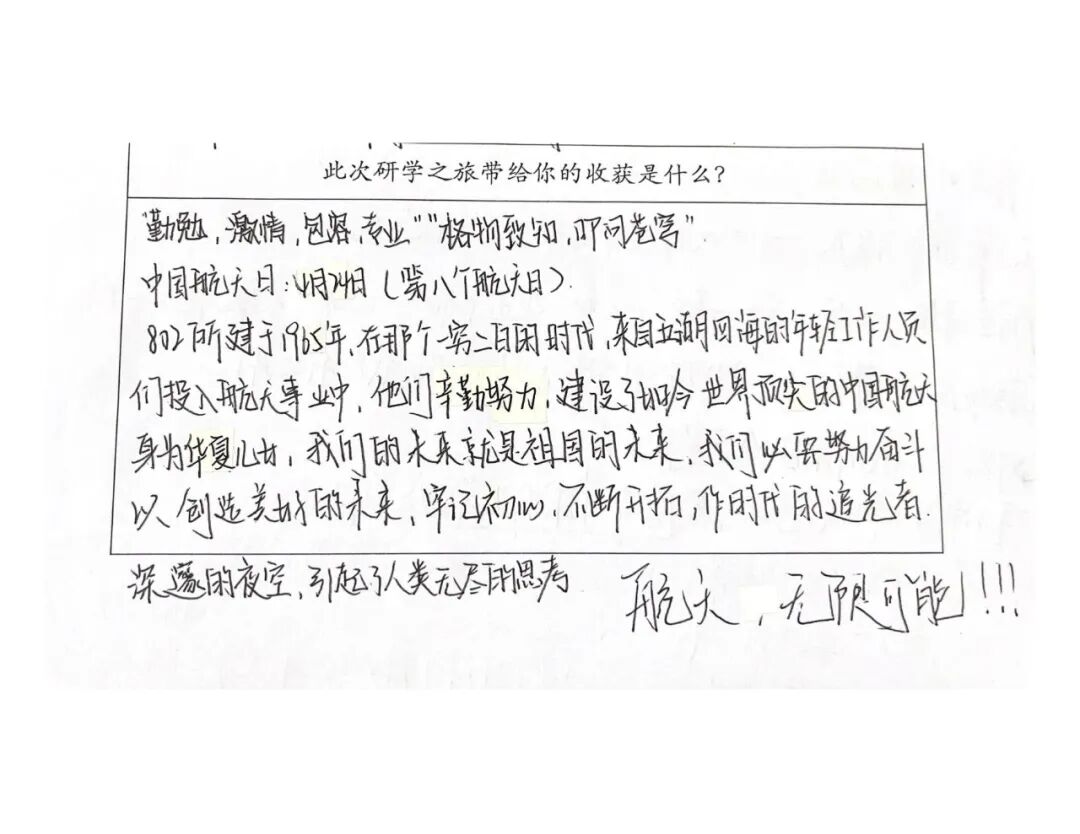 此次研学之旅带给你的收获是什么?
"勤勉,激情,包容,专业""格物致知,叩问苍穹"
中国航天日:4月24日(第八个航天日).
802所建于1965年,在那个一穷二白的时代,来自五湖四海的年轻工作人员
们投入航天事业中,他们辛勤努力,建设了如今世界顶尖的中国航天
身为华夏儿女,我们的未来就是祖国的未来,我们必要努力奋斗
以创造美好的未来,牢记初心,不断开拓,作时代的追光者.
深邃的夜空,引起了人类无尽的思考
航天,无限可能!!!